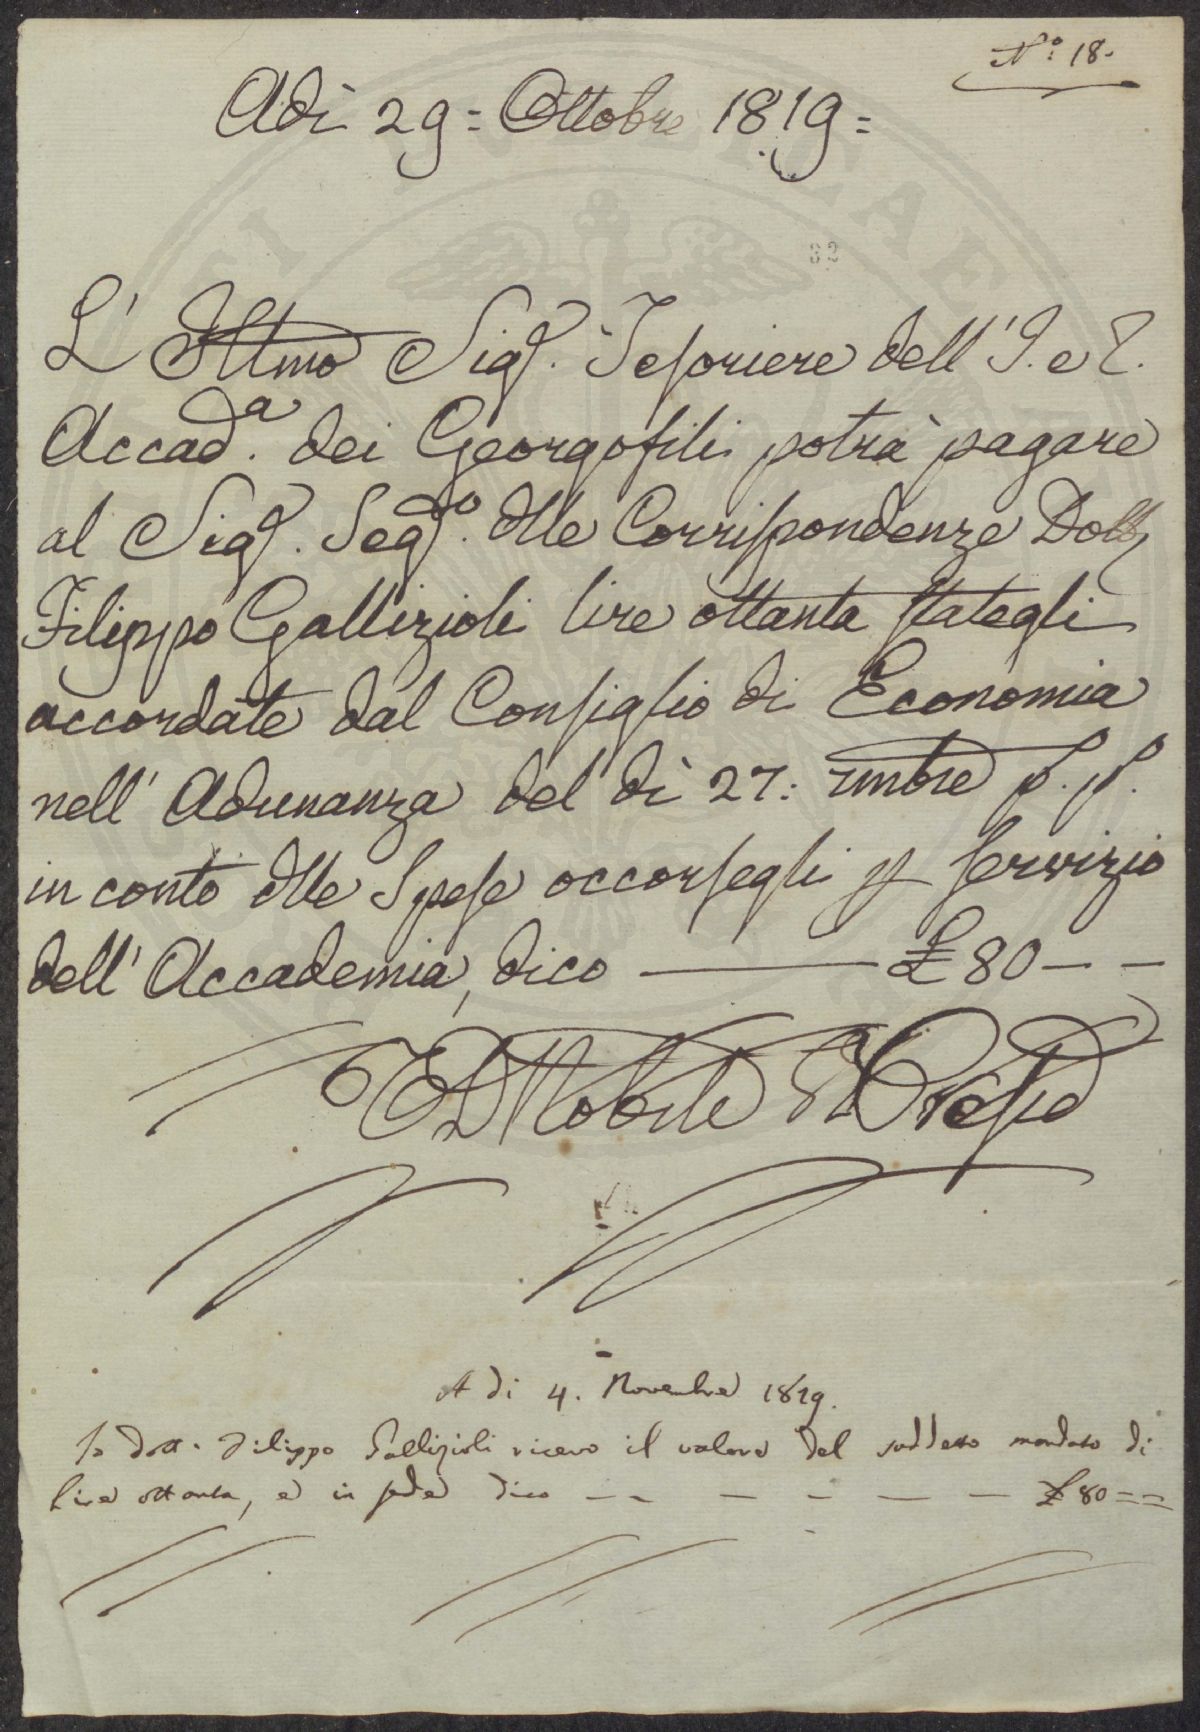 N.° 18.
Adì 29 = Ottobre 1819 =
32
L' Illmo Sigr. Tesoriere dell' I. e R.
Accad.a dei Georgofili potrà pagare
al Sigr. Segr.o dlle Corrispondenze Dott.
Filippo Gallizioli lire ottanta stategli
accordate dal Consiglio di Economia
nell' Adunanza del dì 27: 7mbre p. p.
in conto dlle Spese occorsegli p servizio
dell' Accademia, dico ——— £ 80 — —
A dì 4. Novembre 1819.
Io Dott. Filippo Gallizioli ricevo il valore del suddetto mandato di
lire ottanta, e in fede dico — — — — — — £ 80 = =